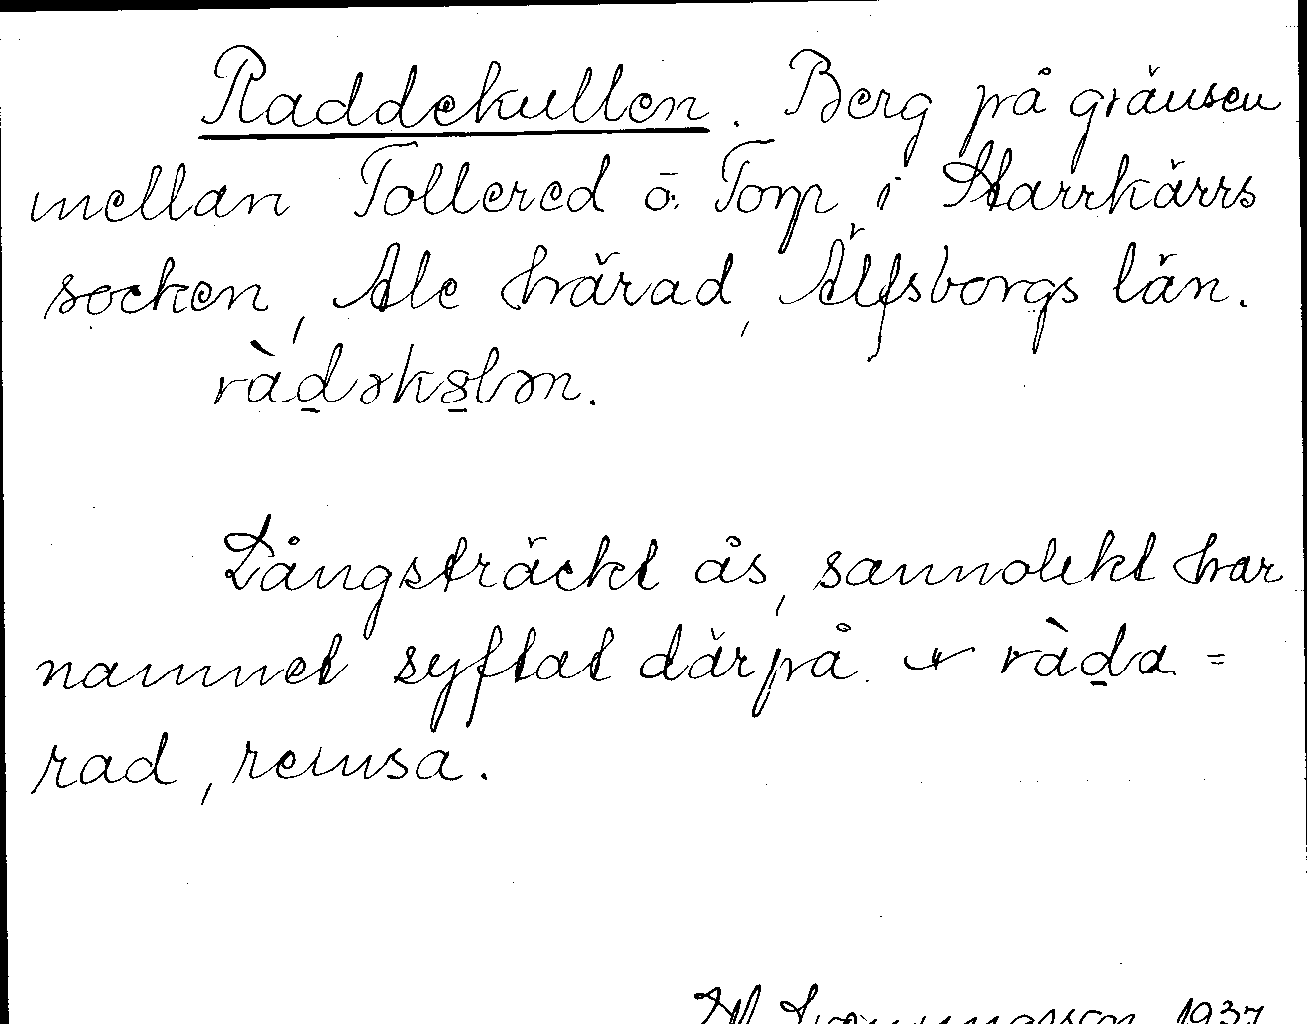 Raddekullen. Berg på gränsen
mellan Tollered o. Torp i Starrkärrs
socken, Ale härad, Älfsborgs län.
ràdəkslən.
Långsträckt ås, sannolikt har
namnet syftat därpå. ràda =
rad, remsa.
1937